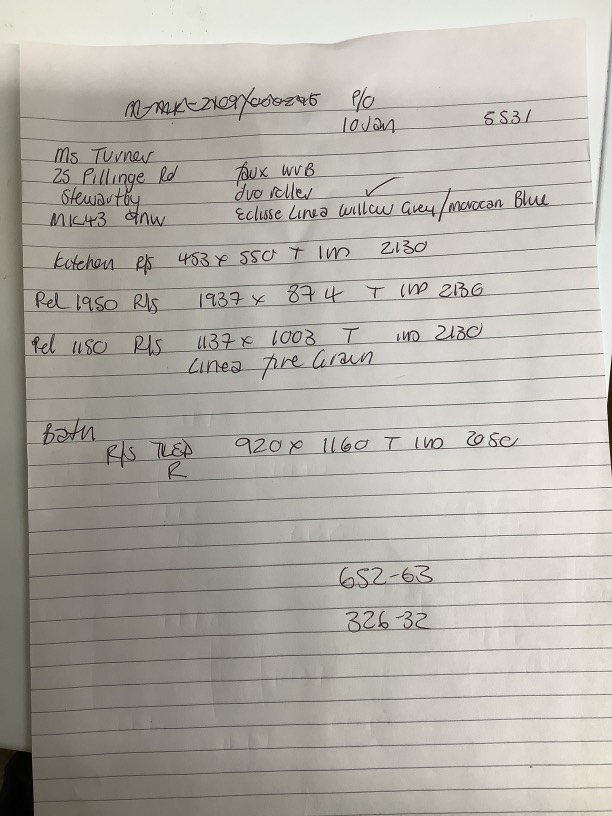 M-MK-2X09/000295 P/O
10 Jan 5531
Ms Turner
25 Pillinge Rd faux WVB
Stewartby duo roller ✓
MK43 9NW Eclisse Linea Willow Grey/Morocan Blue
Kitchen R/S 453 x 550 T IM 2130
Rel 1950 R/S 1937 x 874 T IM 2130
Rel 1150 R/S 1137 x 1003 T IM 2130
Linea fire Grain
Bath
R/S TLED 920 x 1160 T IM 2050
R
652-63
326-32